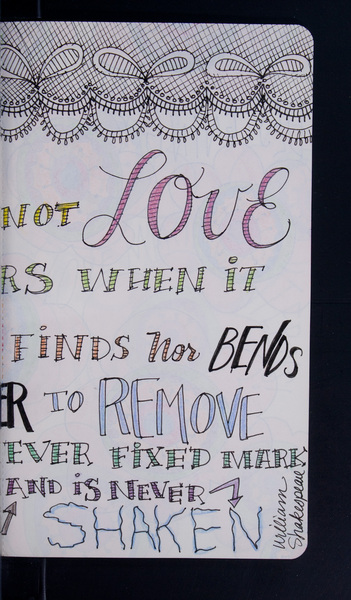 NOT LOVE
RS WHEN iT
FiNDS nor BENDS
ER TO REMOVE
EVER FiXED MARK
AND iS NEVER
SHAKEN
William
Shakespeare